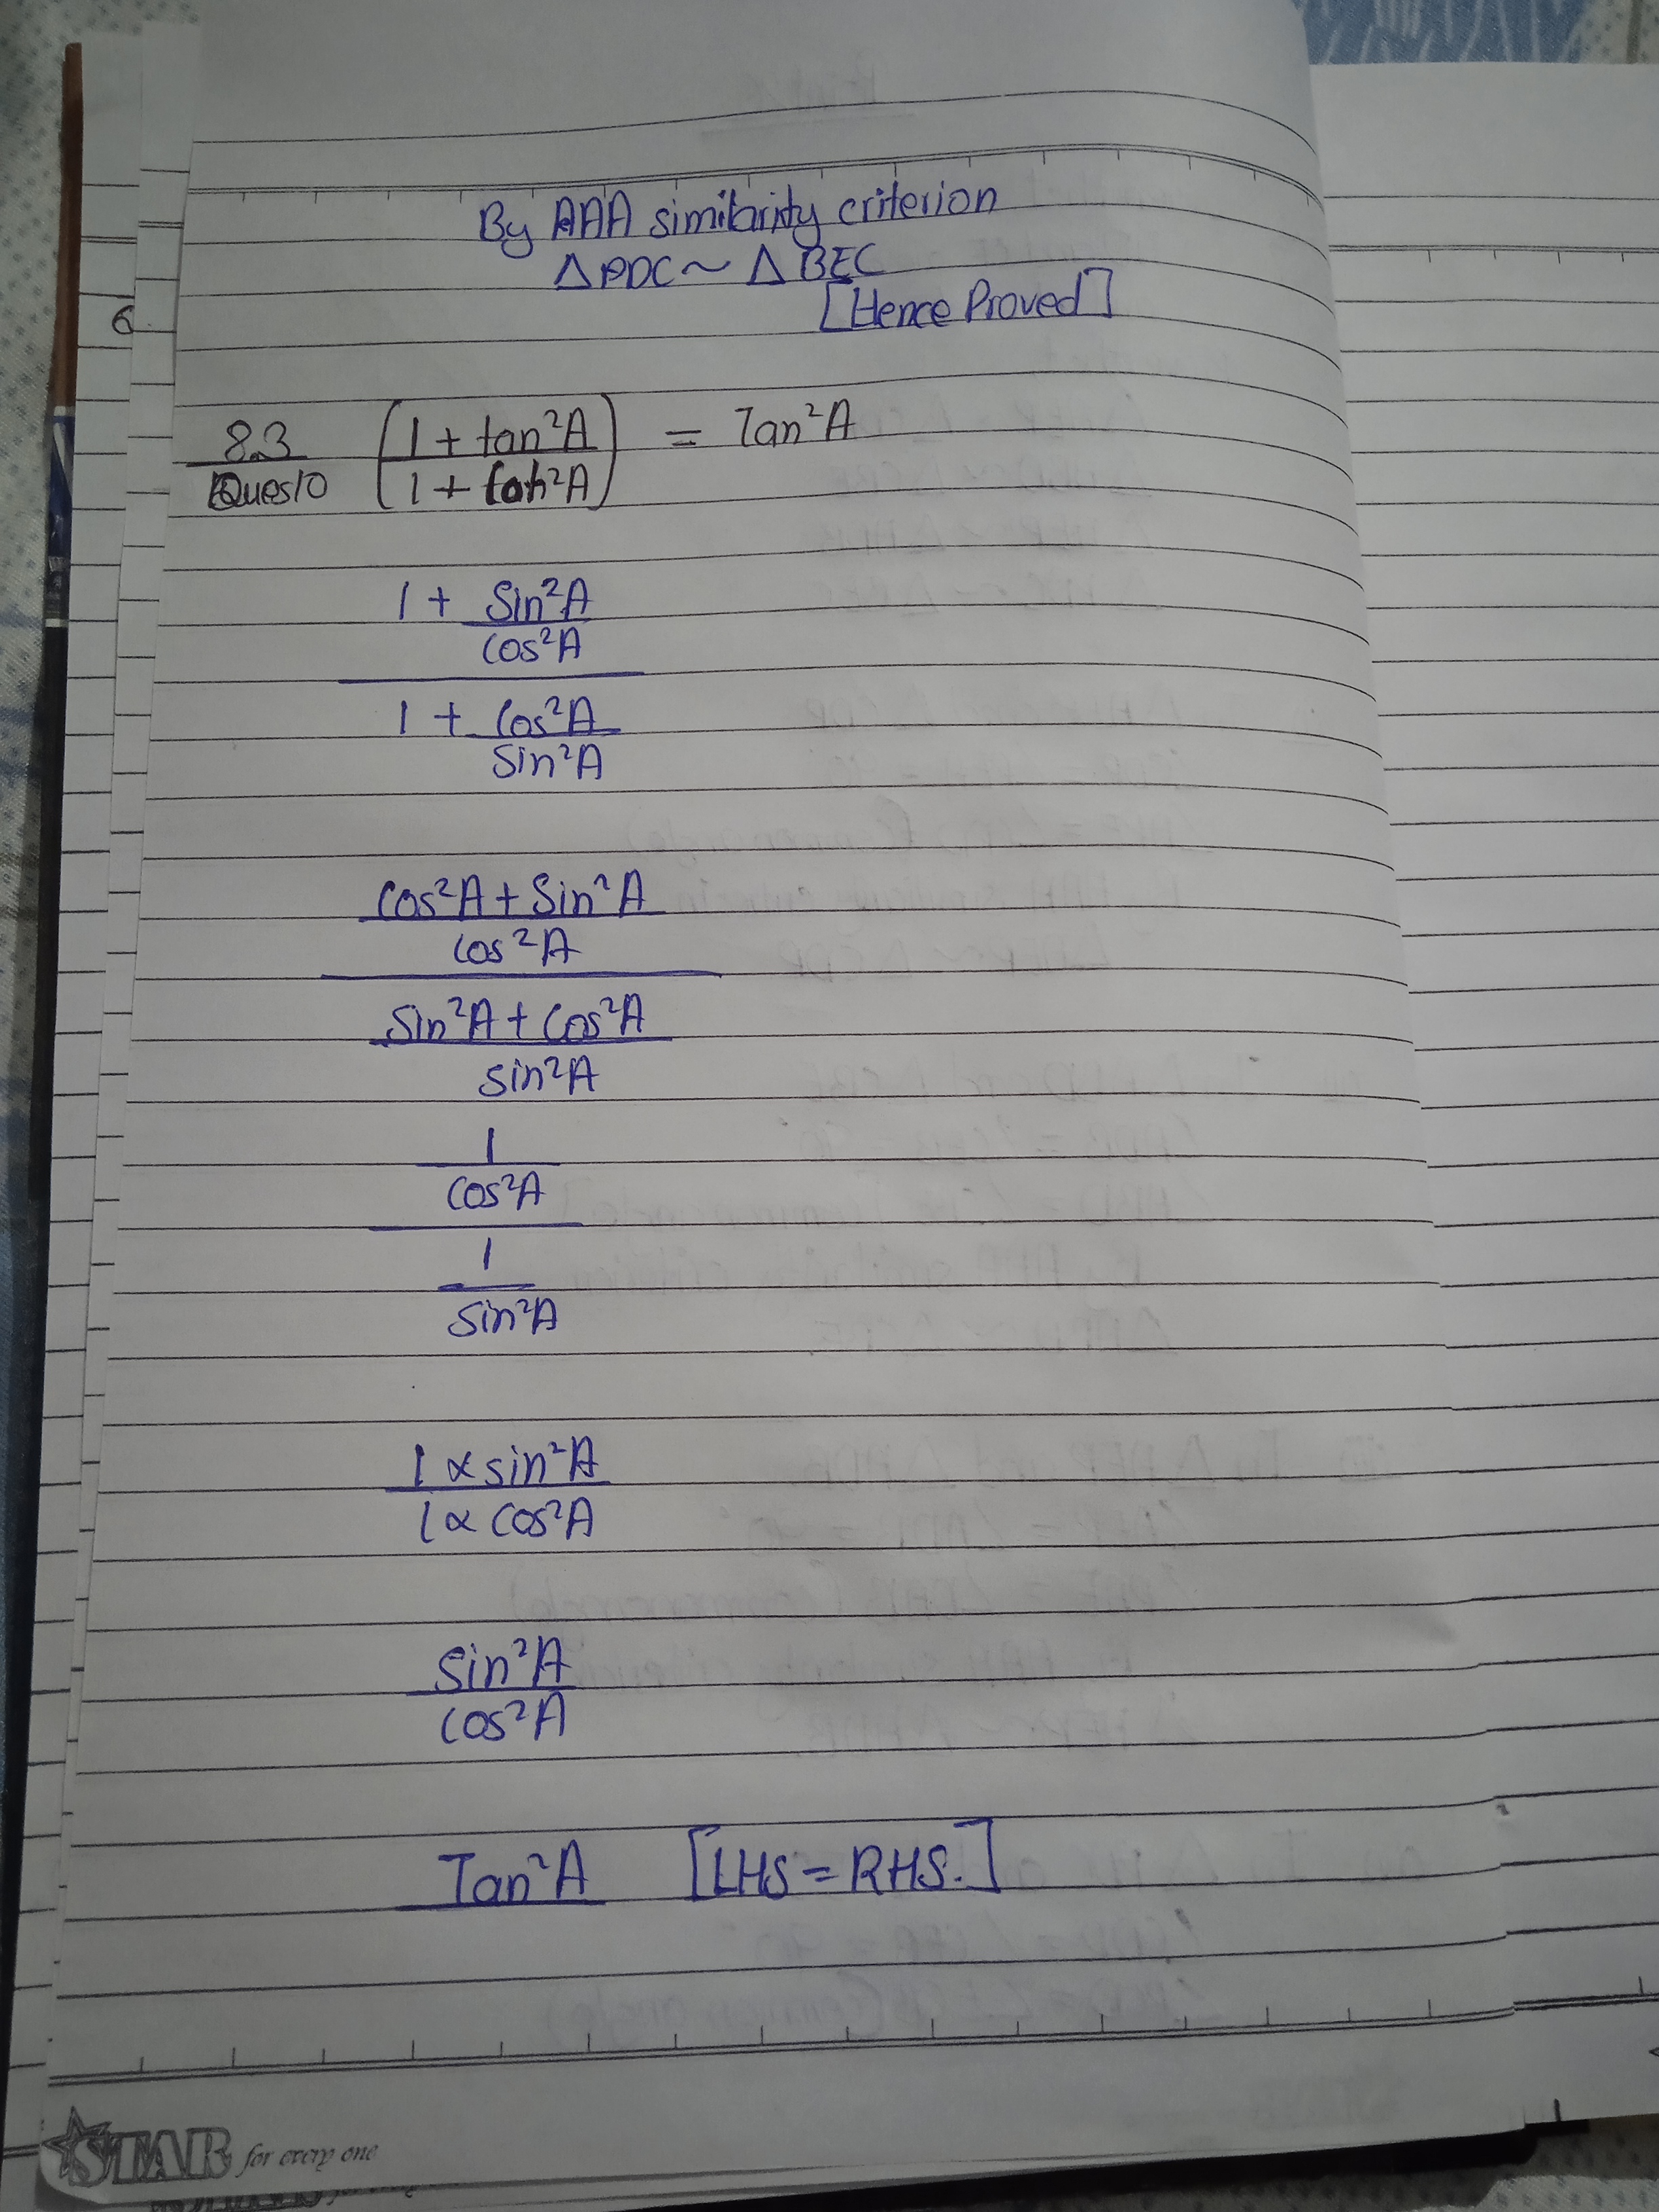 By AAA similarity criterion
△ADC ~ △BEC
[Hence Proved]
6
8.3
Ques10
(1 + tan²A / 1 + cot²A) = Tan²A
1 + Sin²A
cos²A
1 + Cos²A
Sin²A
Cos²A + Sin²A
Cos²A
Sin²A + Cos²A
sin²A
1
Cos²A
1
Sin²A
1 × sin²A
1 × cos²A
Sin²A
Cos²A
Tan²A [LHS = RHS.]
STAR for every one